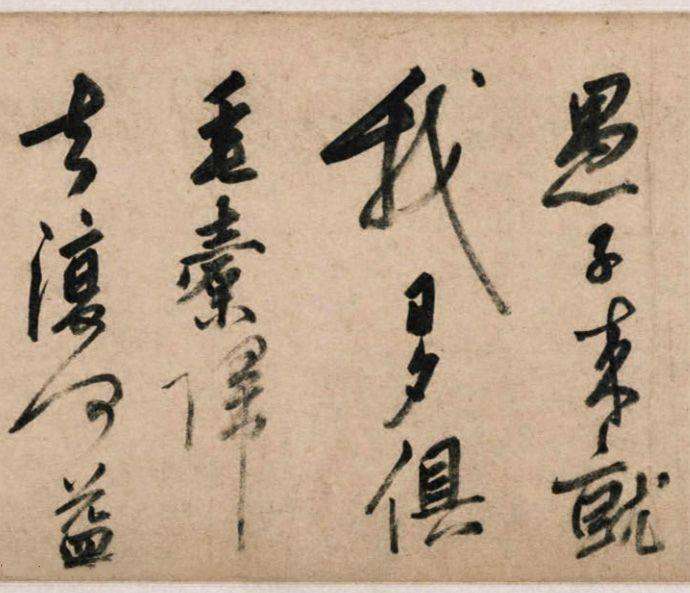 愚子來就
我日夕俱
垂橐歸
去復何益